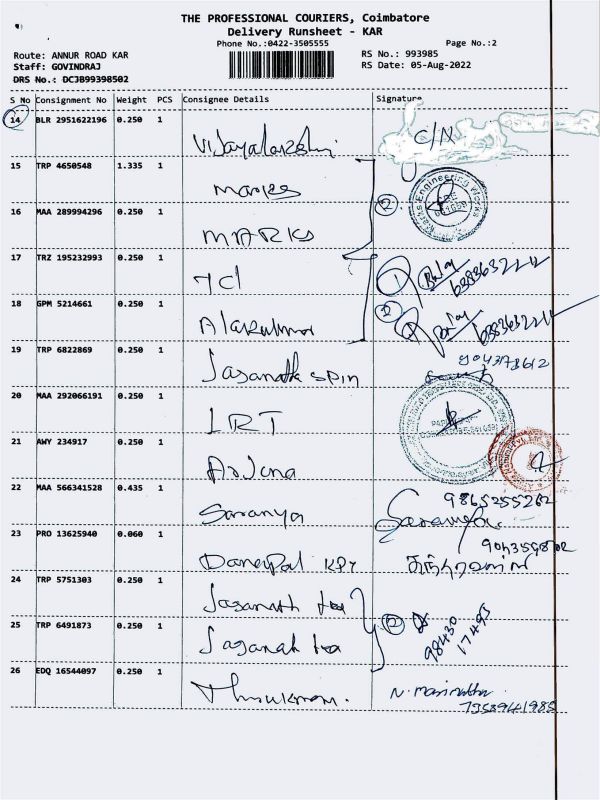 THE PROFESSIONAL COURIERS, Coimbatore
Delivery Runsheet - KAR
Phone No.:0422-3505555 Page No.:2
Route: ANNUR ROAD KAR RS No.: 993985
Staff: GOVINDRAJ RS Date: 05-Aug-2022
DRS No.: DCJB99398502
S No Consignment No Weight PCS Consignee Details Signature
14 BLR 2951622196 0.250 1 C/N
Vijayalakshmi
15 TRP 4650548 1.335 1
Marks
16 MAA 289994296 0.250 1 2
MARKS
17 TRZ 195232993 0.250 1
1
18 GPM 5214661 0.250 1 2
19 TRP 6822869 0.250 1
Jaganath spin
20 MAA 292066191 0.250 1
LRT
21 AWY 234917 0.250 1
Arjuna
22 MAA 566341528 0.435 1 9865255262
Saranya
23 PRO 13625940 0.060 1
24 TRP 5751303 0.250 1
Jaganath tex
25 TRP 6491873 0.250 1 2 98430
Jaganath tex 17495
26 EDQ 16544097 0.250 1